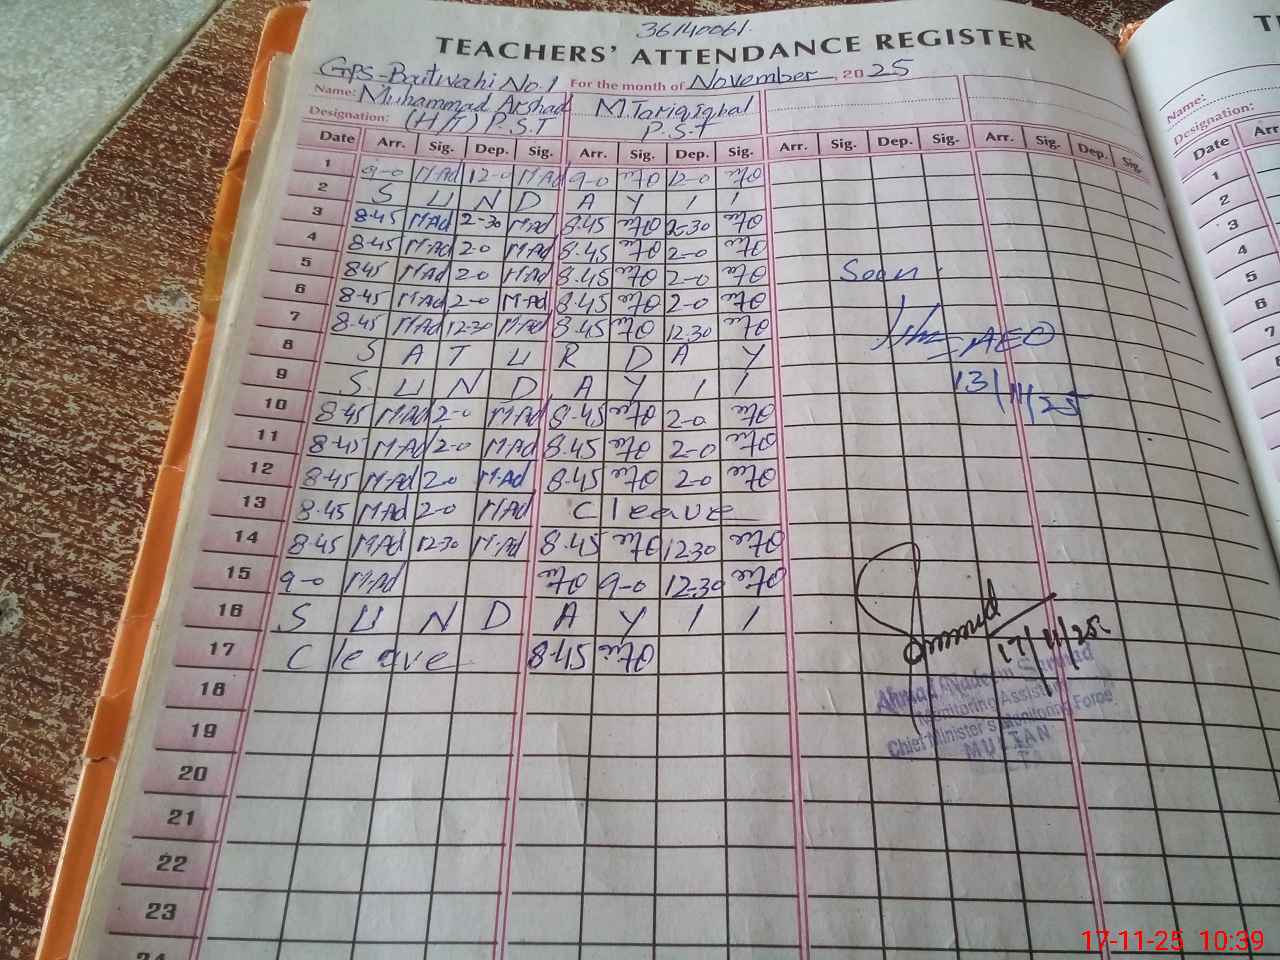 36140061.
TEACHERS' ATTENDANCE REGISTER
GPS-Boutwahi No.1 For the month of November, 2025
Name: Muhammad Arshad M.Tariqiqbal
Designation: (H/T) P.S.T P.S.T
Date Arr. Sig. Dep. Sig. Arr. Sig. Dep. Sig. Arr. Sig. Dep. Sig. Arr. Sig. Dep. Sig.
1 9-0 M.Ad 12-0 M.Ad 9-0 12-0
2 S U N D A Y 1 1
3 8-45 M.Ad 2-30 M.Ad 8.45 2-30
4 8-45 M-Ad 20 M-Ad 8.45 2-0
5 8.45 M-Ad 20 M-Ad 8.45 2-0
6 8.45 M-Ad 2-0 M-Ad 8.45 2-0
7 8-45 M-Ad 12-30 M-Ad 8.45 12.30
8 S A T U R D A Y
9 S U N D A Y 1 1
10 8-45 M-Ad 2-0 M-Ad 8-45 2-0
11 8-45 M-Ad 2-0 M-Ad 8.45 2-0
12 8-45 M-Ad 20 M-Ad 8.45 2-0
13 8-45 M-Ad 2-0 M-Ad C leave
14 8-45 M-Ad 12-30 M-Ad 8.45 12.30
15 9-0 M-Ad 9-0 12-30
16 S U N D A Y 1 1
17 C leave 8.45
18
19
20
21
22
23
24
Seen
AEO
13/11/25
17/11/25
Ahmad
Monitoring Assistant
Chief Minister's Monitoring Force
MULTAN
Name:
Designation:
Date Arr
1
2
3
4
5
6
7
8
17-11-25 10:39